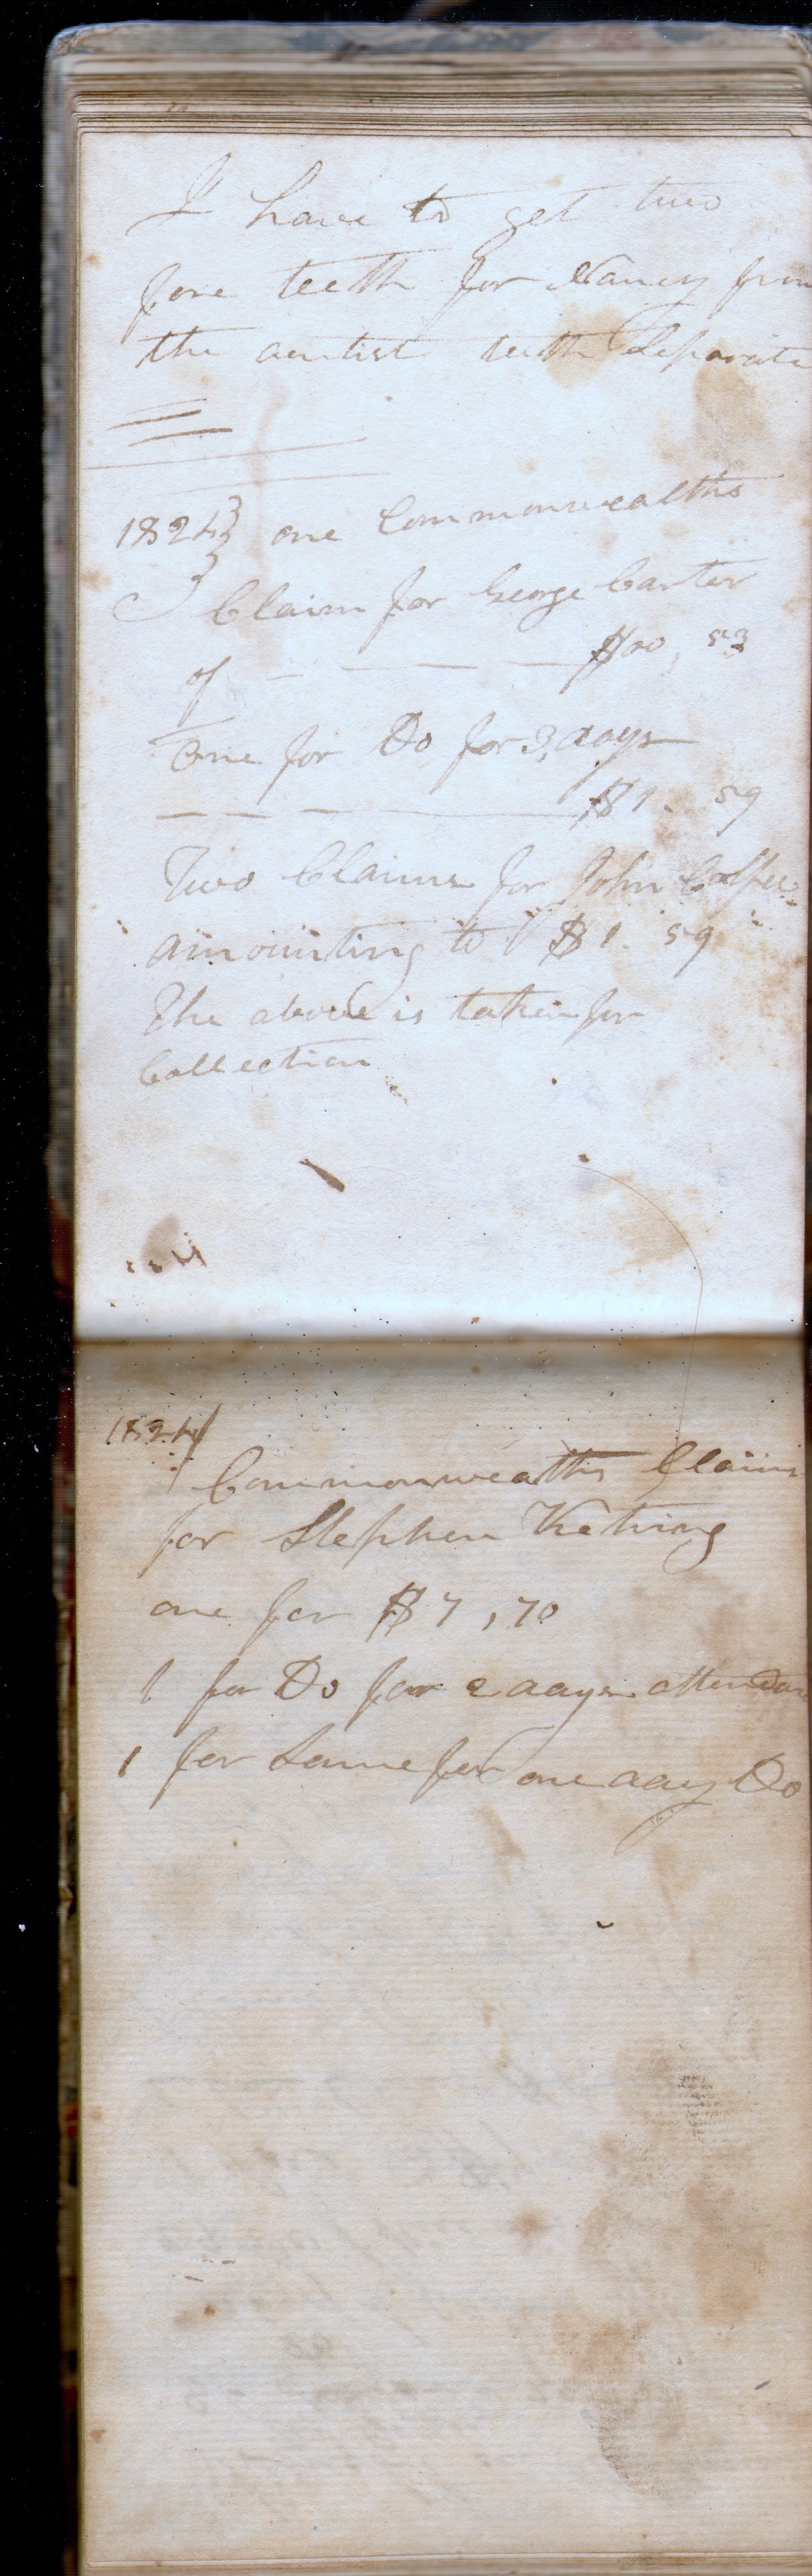 I have to get two
fore teeth for Nancy from
the dentist teeth Separate
1824 one Commonwealths
Claim for George Carter
of $00, 53
One for Do for 3, days
$1. 59
Two Claims for John
amounting to $1. 59
The above is taken for
Collection
1824
Commonwealths Claims
for Stephen Ketring
one for $7, 70
1 for Do for 2 days attendan
1 for Same for one day Do